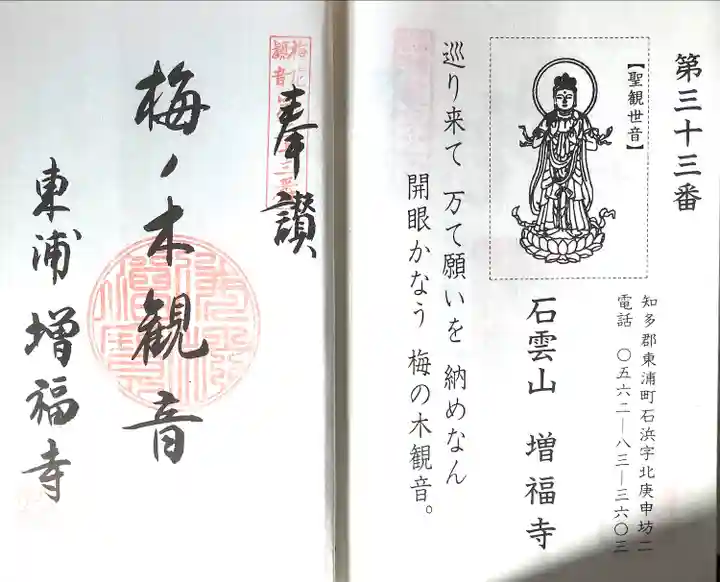 第三十三番
【聖観世音】
知多郡東浦町石浜字北庚申坊二
電話 〇五六二―八三―三六〇三
石雲山 増福寺
巡り来て 万て願いを 納めなん
開眼かなう 梅の木観音。
奉讃
梅ノ木観音
東浦増福寺